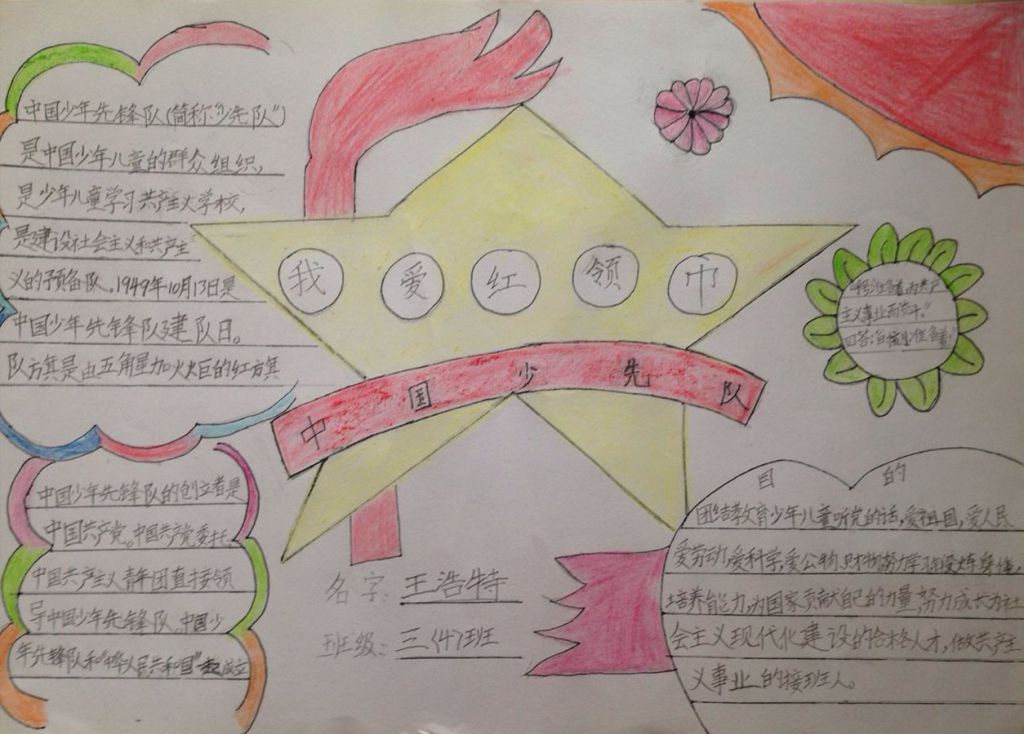 中国少年先锋队(简称"少先队")
是中国少年儿童的群众组织，
是少年儿童学习共产主义学校，
是建设社会主义和共产主
义的预备队。1949年10月13日是
中国少年先锋队建队日。
队方旗是由五角星加火火巨的红方旗
我爱红领巾
中国少先队
主义事业而奋斗"
回答:
中国少年先锋队的创立者是
中国共产党。中国共产党委托
中国共产主义青年团直接领
导中国少年先锋队。中国少
年先锋队和
名字:王浩特
班级:三(4)班
目的
团结教育少年儿童听党的话,爱祖国,爱人民
爱劳动,爱科学,爱公物,努力学习,锻炼身体,
培养能力,为国家贡献自己的力量,努力成长为社
会主义现代化建设的合格人才,做共产主
义事业的接班人。